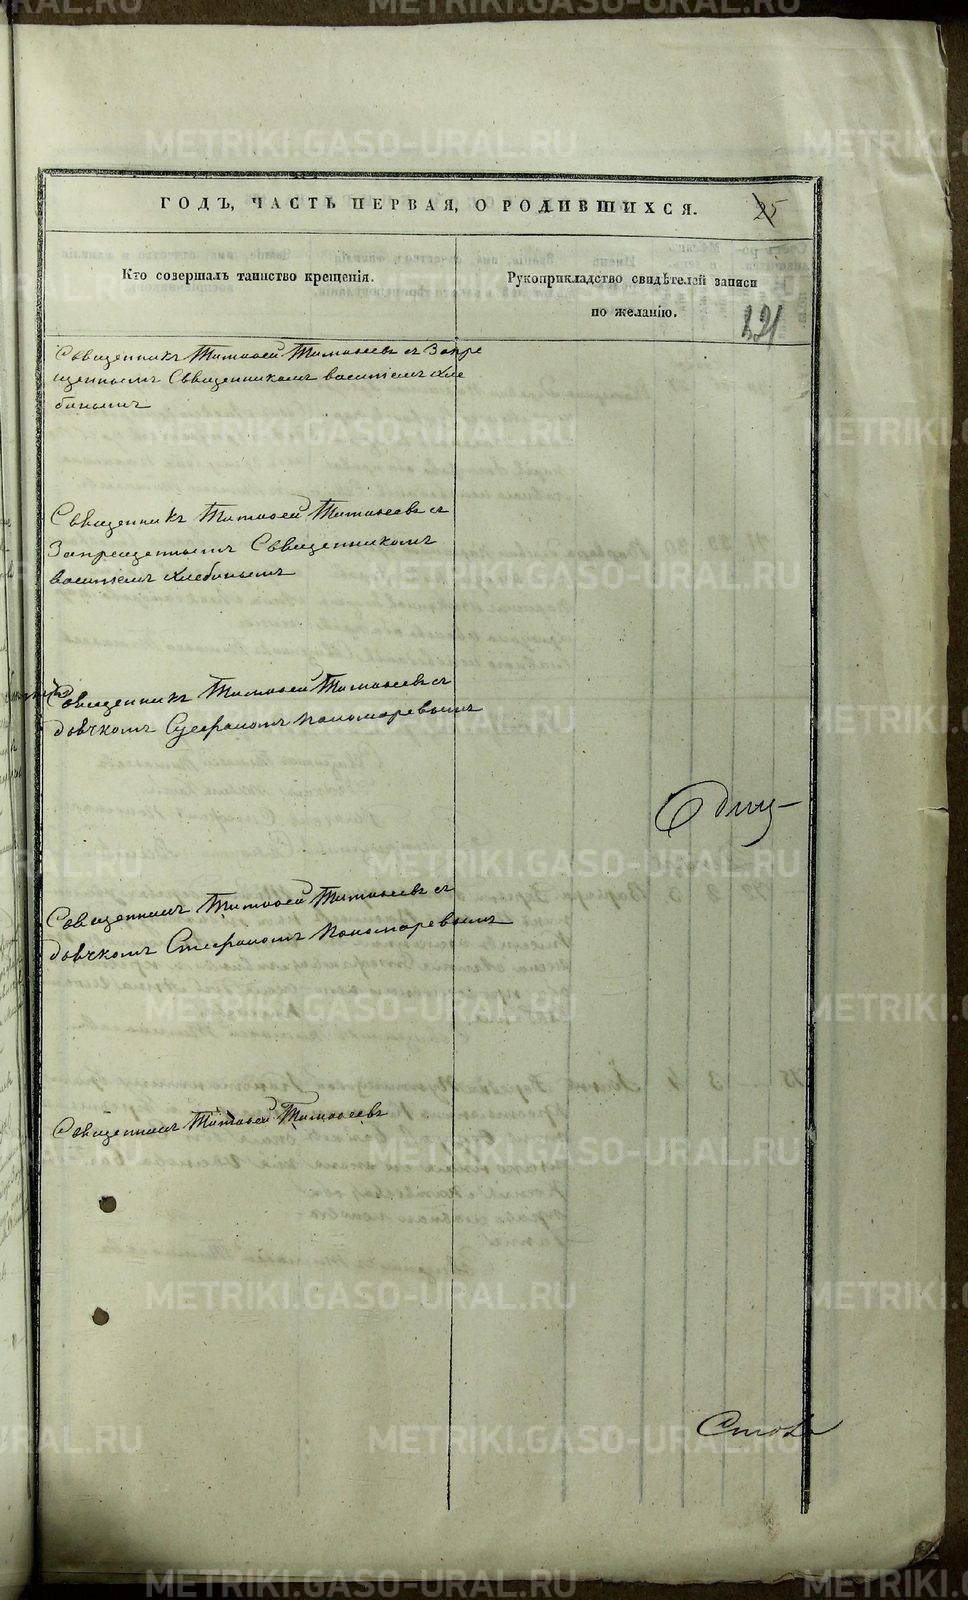 ГОДЪ, ЧАСТЬ ПЕРВАЯ, О РОДИВШИХСЯ.
25
Кто совершалъ таинство крещенія.
Рукоприкладство свидѣтелей записи
по желанію.
121
Священникъ Тимоѳей Тимоѳеевъ съ Запре
щеннымъ Священникомъ василіемъ хле
бинымъ
Священникъ Тимоѳей Тимоѳеевъ съ
Запрещеннымъ Священникомъ
василіемъ хлебинымъ
Священникъ Тимоѳей Тимоѳеевъ съ
дьячкомъ Стефаномъ Пономаревымъ
Священникъ Тимоѳей Тимоѳеевъ съ
дьячкомъ Стефаномъ Пономаревымъ
Священникъ Тимоѳей Тимоѳеевъ
METRIKI.GASO-URAL.RU